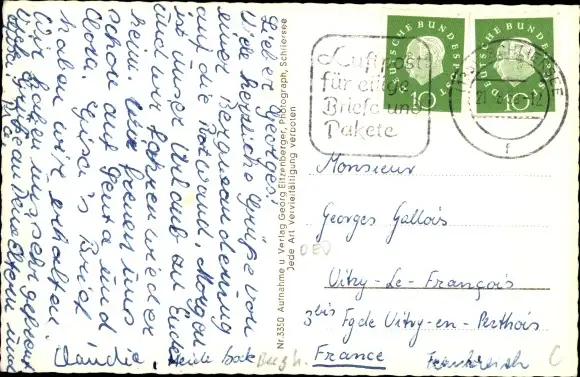 Lieber Georges!
Viele herzliche Grüße von
einer Bergwanderung
auf die Rotwand. Morgen
ist unser Urlaub zu Ende
und wir fahren wieder
heim. Wir freuen uns
schon auf Gerta und
Clara. Elisa's Brief
haben wir erhalten
Wir haben uns sehr gefreut
Viele Grüße
Claudia,
Heide
Nr. 3350 Aufnahme u. Verlag Georg Eitzenberger, Photograph, Schliersee
Jede Art Vervielfältigung verboten
DEUTSCHE BUNDESPOST
10
DEUTSCHE BUNDESPOST
10
Luftpost
für eilige
Briefe und
Pakete
f
Monsieur
Georges Gallois
Vitry-Le-François
3bis Fg de Vitry-en-Perthois
France
Frankreich